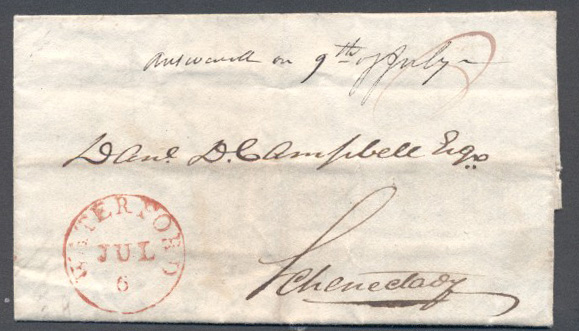 Answered on 9th of July
Danl. D. Campbell Esqr.
Schenectady
WATERFORD
JUL
6